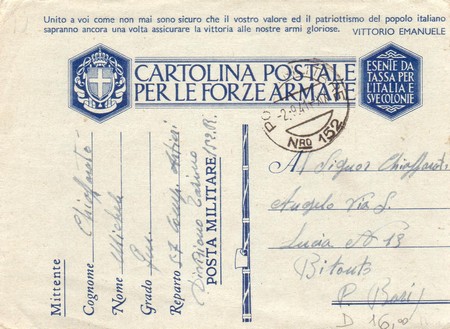 Unito a voi come non mai sono sicuro che il vostro valore ed il patriottismo del popolo italiano
sapranno ancora una volta assicurare la vittoria alle nostre armi gloriose. VITTORIO EMANUELE
CARTOLINA POSTALE
PER LE FORZE ARMATE
ESENTE DA
TASSA PER
L'ITALIA E
SVE COLONIE
PO
-2.9.41
NRO 152
Mittente
Cognome Chiaffarato
Nome Michele
Grado
Reparto 57
Divisione
POSTA MILITARE 152 R.
Al Signor
Angelo Via S.
Lucia N 13
Bitonto
P. (Bari)
D 16,00